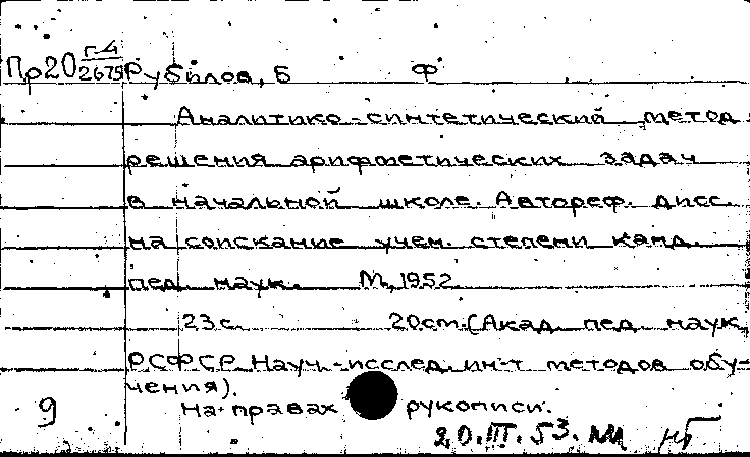 Пр20 Г-4/2675 Рубилов, Б Ф
Аналитико-синтетический метод
решения арифметических задач
в начальной школе. Автореф. дисс.
на соискание учен. степени канд.
пед. наук. М, 1952
23с. 20см. (Акад. пед. наук
РСФСР Науч.-исслед. ин-т методов обу-
чения).
9 На правах рукописи.
20.III.53.